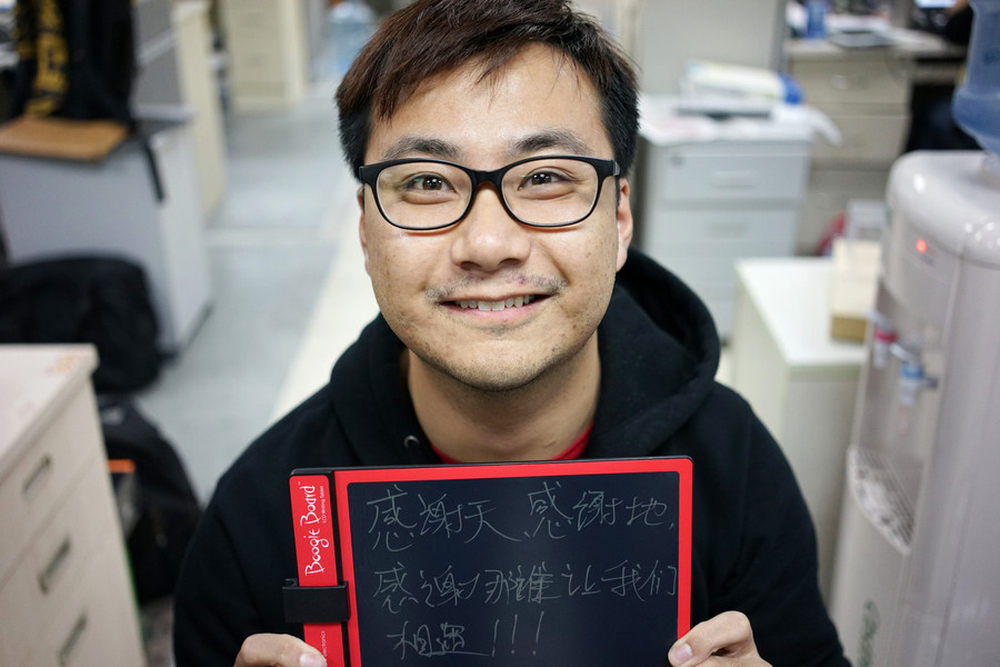 Boogie Board™
LCD Writing Tablet
感谢天、感谢地,
感谢那谁让我们
相遇!!!